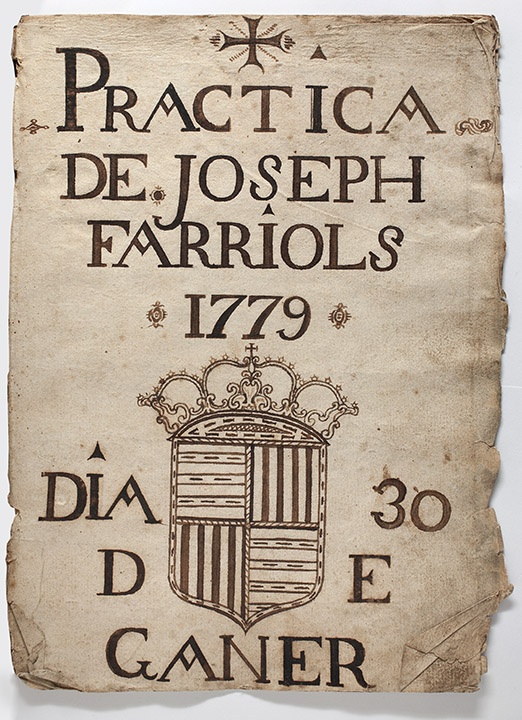 PRACTICA
DE JOSEPH
FARRIOLS
1779
DIA 30
D E
GANER